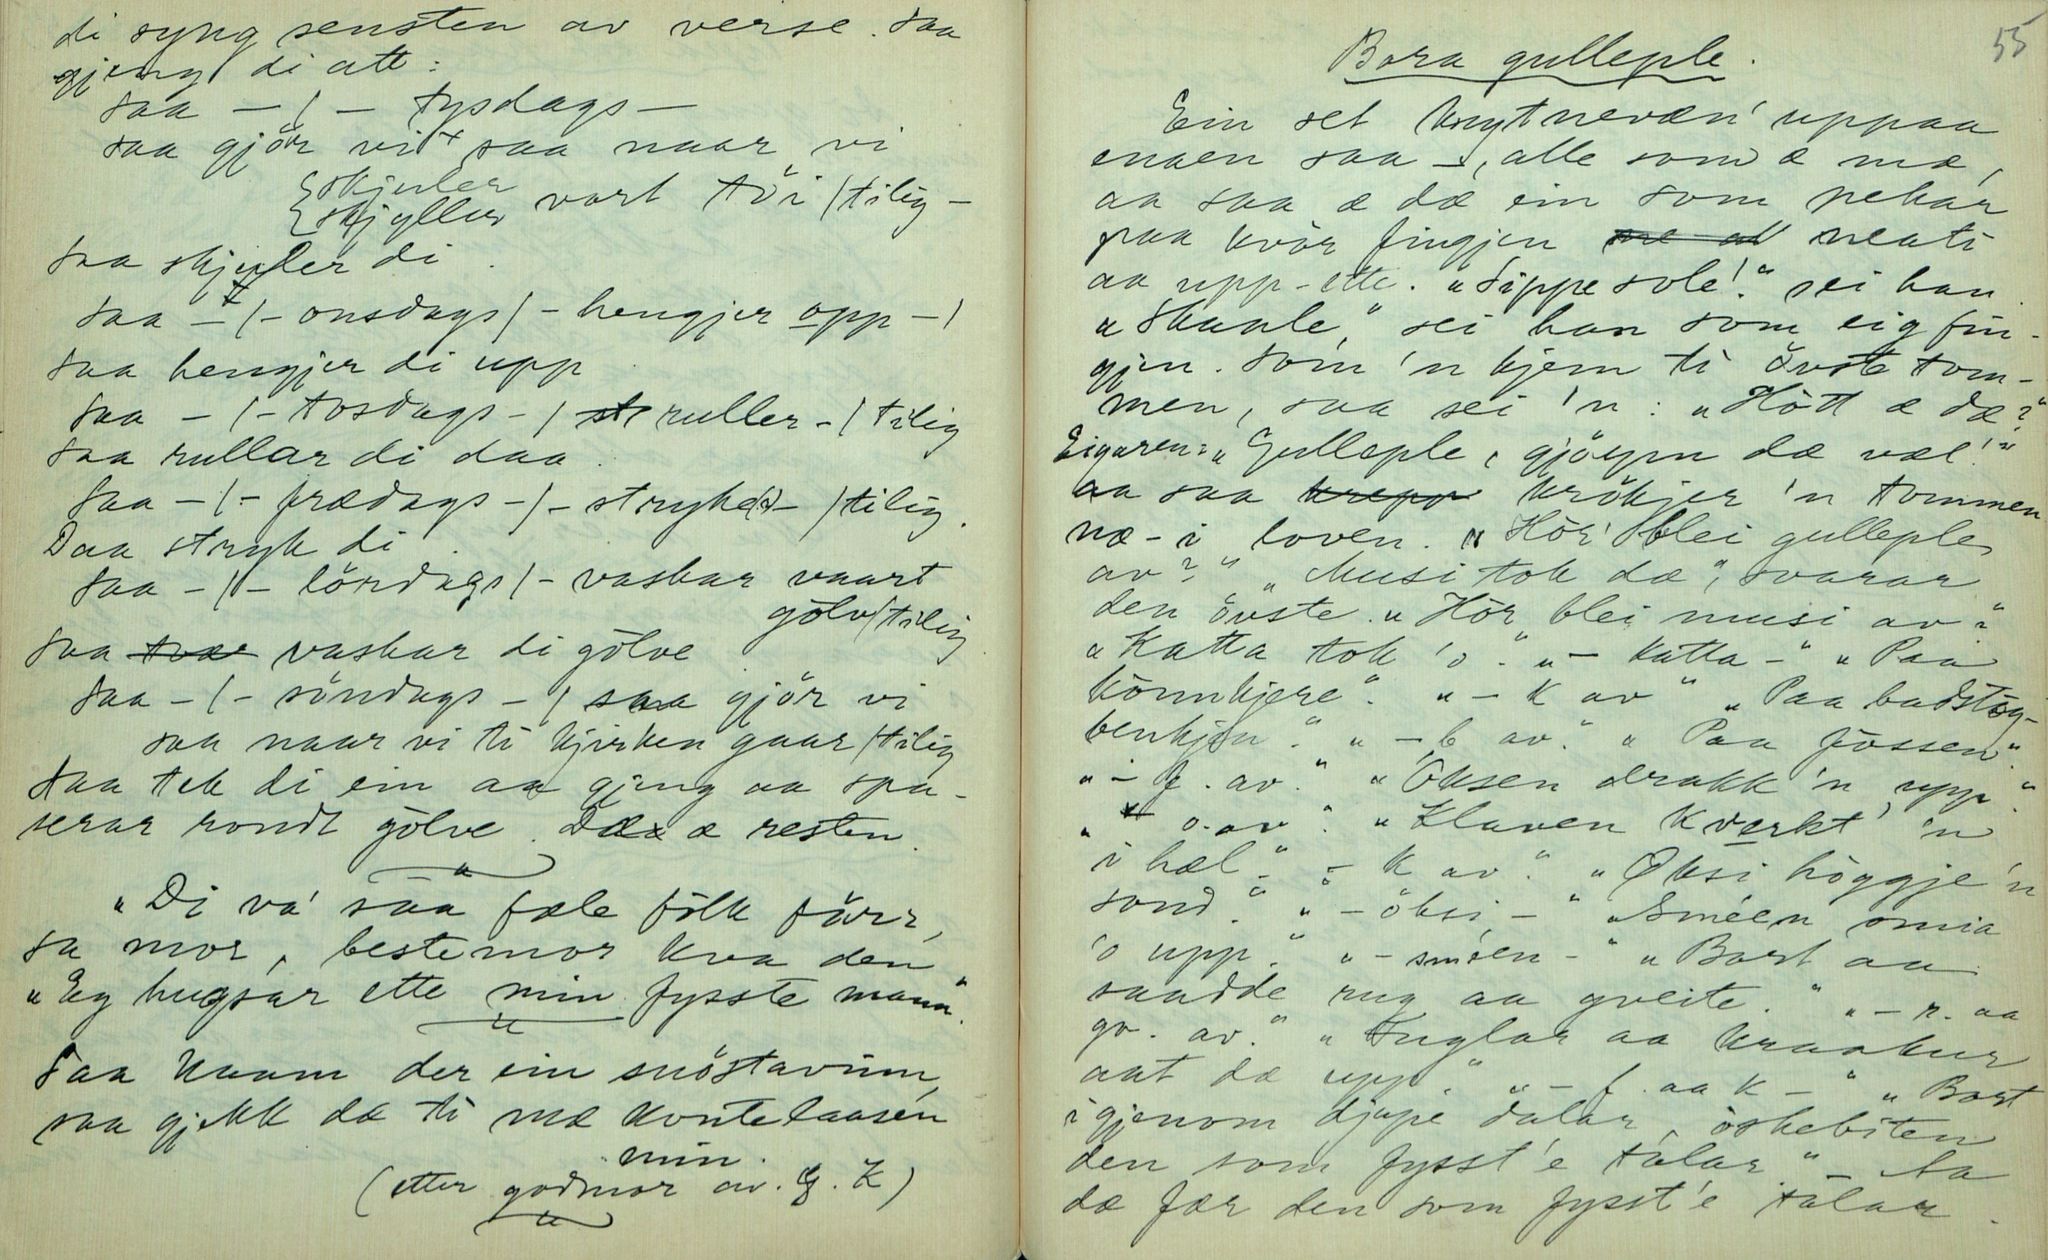 di syng sensten av verse. Saa
gjeng di att:
Saa – / – tysdags –
saa gjör vi + saa naar vi
{skjuler
{skjyller vort töi / tilig –
Saa skjyler di.
Saa – / – onsdags / – hengjer opp – /
Saa hengjer di upp
Saa – / – tosdags – / ruller – / tilig
Saa rullar di daa.
Saa – / – frædags – / – stryke(r) – / tilig.
Daa stryk di.
Saa – / – lördags / – vaskar vaart
gölv / tilig
Saa vaskar di gölve
Saa – / – söndags – / saa gjör vi
saa naar vi ti kjirken gaar / tilig
Saa tek di ein aa gjeng aa spa-
serar rondt gölve. Dæ æ resten.
"Di va' saa fæle fölk förr,
sa mor, bestemor kva den
"Eg hugsar ette min fysste mann".
Saa kaam der ein snöstavinn,
saa gjekk dæ ti mæ kontelaasen
min.
(etter godmor av. G. K)
55
Bora gulleple.
Ein set knytneván' uppaa
enaen saa –, alle som æ mæ,
aa saa æ dæ ein som pekar
paa kvör fingjen neati
aa upp-ette. "Sippe sole!" sei han.
"Skaale," sei han som eig fin-
gjen. Som 'n kjem ti övste tom-
men, saa sei 'n: "Hött æ dæ?"
Eigaren: "Gulleple, gjöym dæ væl!"
aa saa krökjer 'n tommen
næ-i loven. "Hör blei gulleple
av?" "Musi tok dæ", svarar
den övste. "Hör blei musi av"
"Katta tok 'o." "– katta –" "Paa
könnkjere". "– k av" "Paa badstog-
benkjen." "– b av." "Paa fossen".
"– f. av." "Oksen drakk 'n upp."
" o. av." "Klaven kverkt' 'n
i hæl." – k av." "Øksi höggje 'n
sond." "– öksi –" "Sméen smia
'o upp." "– sméen –" "Bort aa
saadde rug aa gveite." "– r. aa
gv. av." "Fuglar aa kraakur
aat dæ upp." "– f. aa k –" "Bort
igjenom djupe dalar, oskebiten
den som fysst'e talar" –
dæ fær den som fysst'e talar.